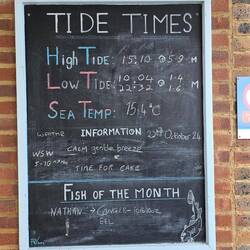 TIDE TIMES
HIGH TIDE: 15:10 @ 5.9 M
LOW TIDE: 10:04 @ 1.4
22:32 @ 1.6 M
SEA TEMP: 15.4°C
INFORMATION
October 24
WSW CALM gentle breeze
TIME FOR CAKE
FISH OF THE MONTH
NATHAN
EEL